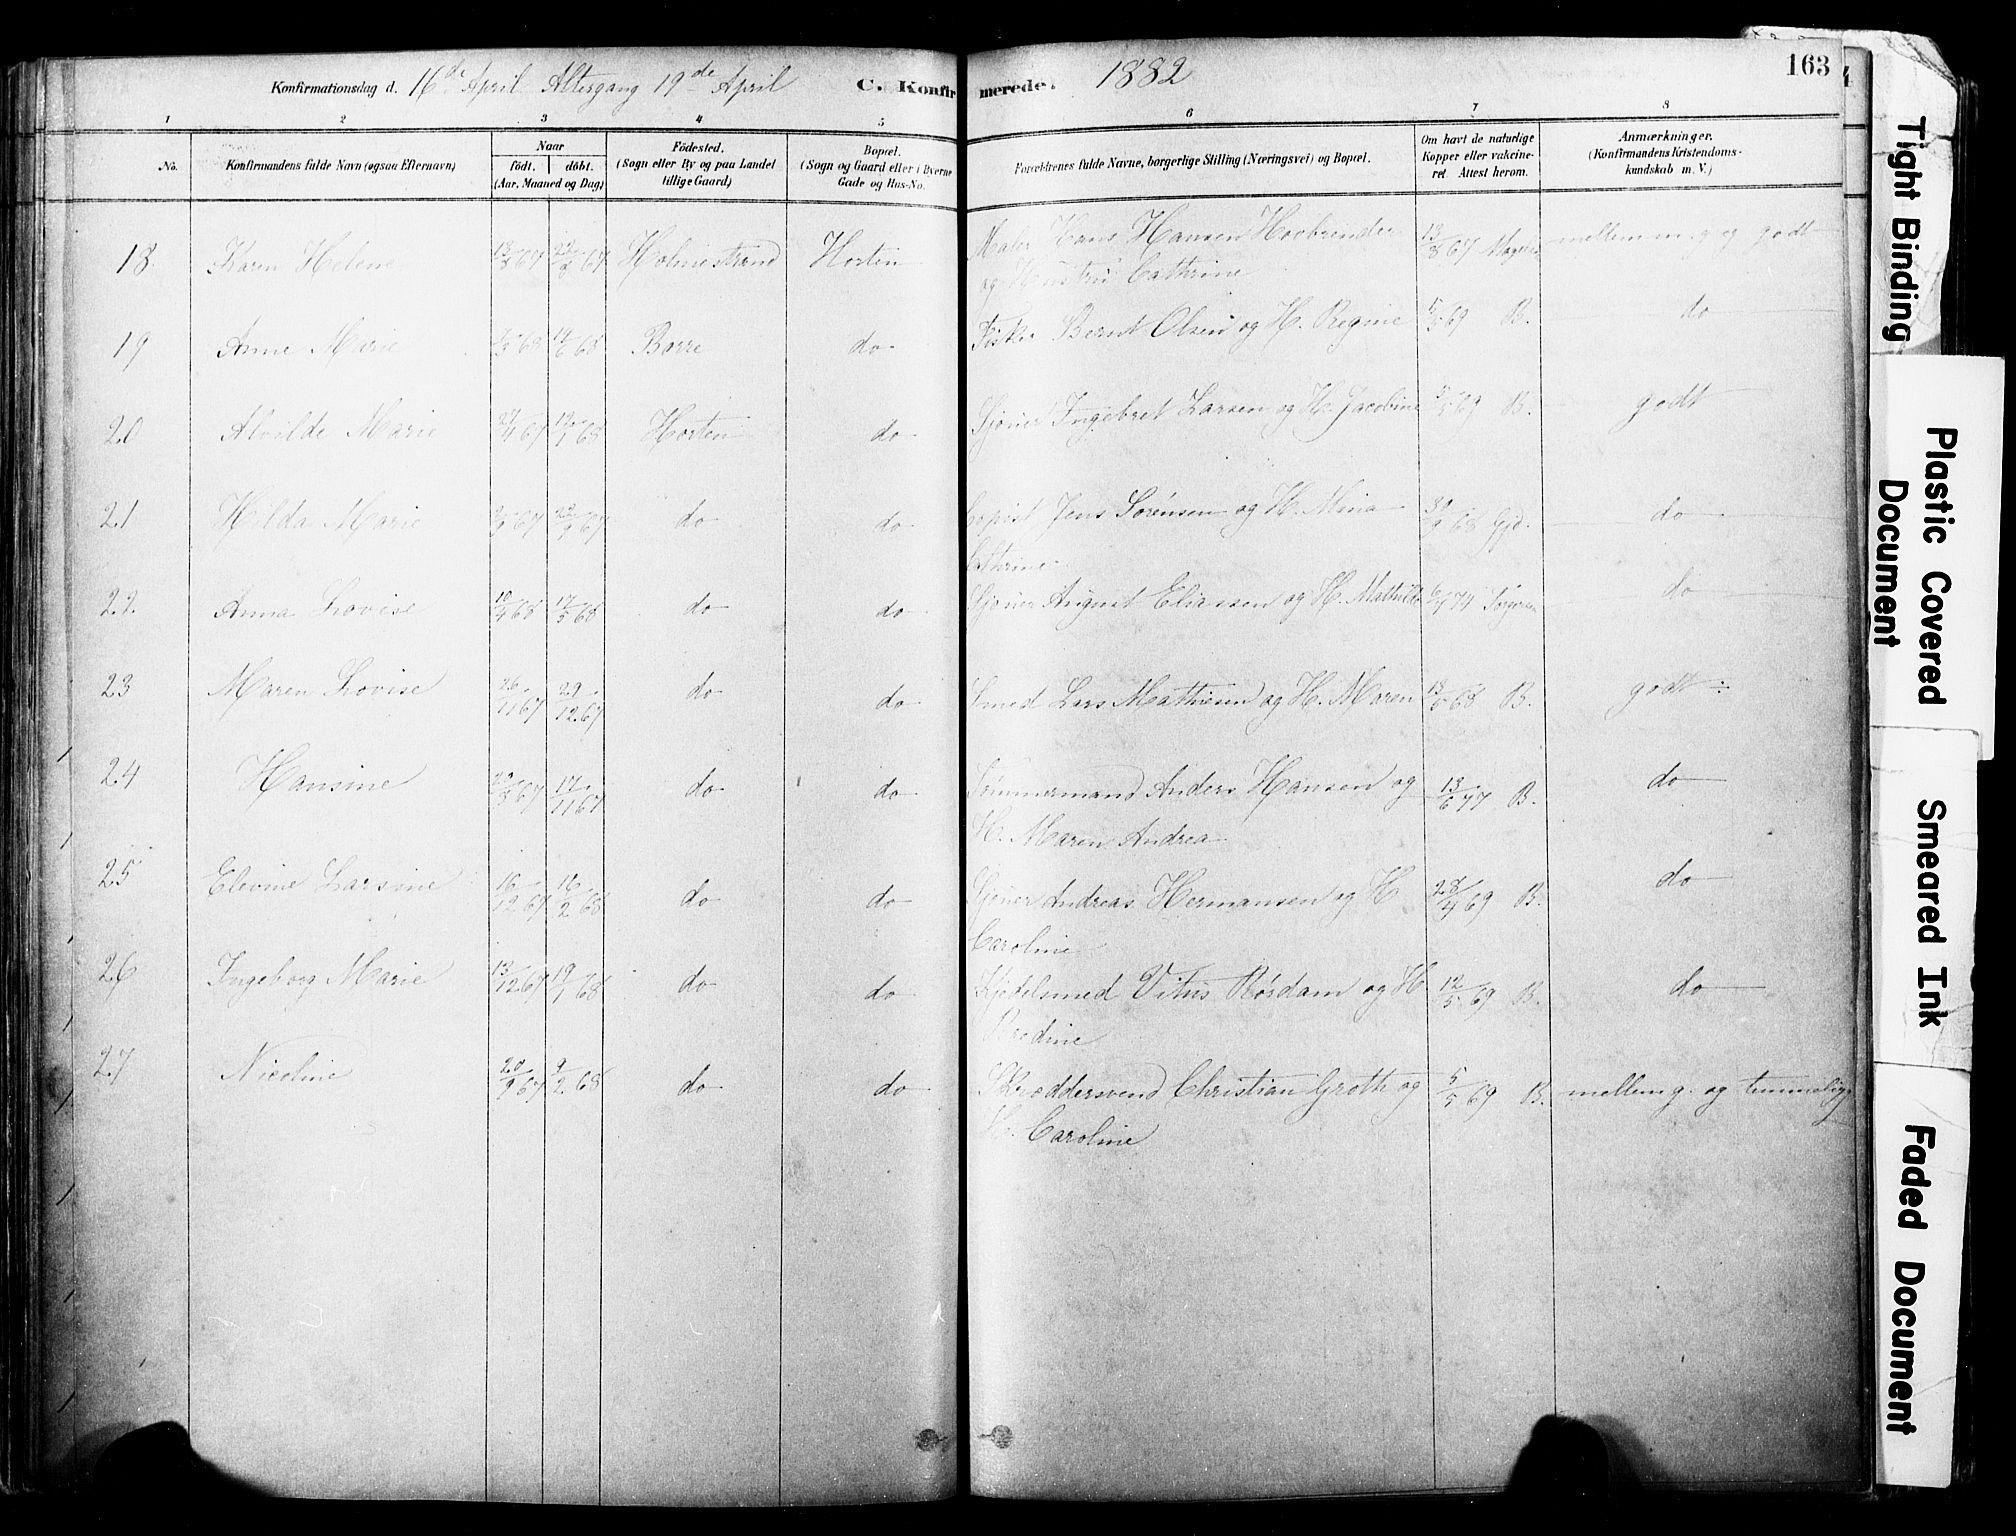 Konfirmationsdag d. 16de April Altergang 19de April C. Konfirmerede. 1882 163
1 2 3 4 5 6 7 8
No. Konfirmandens fulde Navn (ogsaa Efternavn) Naar födt. döbt. (Aar, Maaned og Dag) Födested. (Sogn eller By og paa Landet tillige Gaard) Bopæl. (Sogn og Gaard eller i Byerne Gade og Hus-No. Forældrenes fulde Navne, borgerlige Stilling (Næringsvei) og Bopæl. Om havt de naturlige Kopper eller vakcineret Attest herom. Anmærkninger. (Konfirmandens Kristendomskundskab m. V.)
18 Karen Helene Holmestrand Horten Maler Hans Hansen 13/8 67 mellem m. g. og godt
og Hustru Cathrine
19 Anne Marie 14/6 68 Borre do Fisker Bernt Olsen og H. Regine 5/5 69 B. do
20 Alvilde Marie Horten do Sjömer Ingebret Larsen og H. Jacobine B. godt
21 Hilda Marie do do Copist Jens Sørensen og H. Mina 30/9 68 Gjd. do
Cathrine
22 Anna Lovise 10/4 68 17/5 68 do do Sjömer August Eliassen og H. Mathilde do
23 Maren Lovise 26/11 67 29/12 67 do do Smed Lars Mathisen og H. Maren B. godt
24 Hansine 17/11 67 do do Tømmermand Anders Hansen og 13/6 77 B. do
H. Maren Andrea
25 Elevine Larsine 16/12 67 16/2 68 do do Sjömer Andreas Hermansen og H 28/4 69 B. do
Caroline
26 Ingeborg Marie 13/12 67 19/1 68 do do Kjedelsmed Vitus Rørdam og H 12/5 69 B. do
27 Nicoline 20/9 67 9/2 68 do do Skræddersvend Christian Groth og 5/5 69 B. mellem g. og temmelig g
H. Caroline
Tight Binding
Plastic Covered Document
Smeared Ink
Faded Document